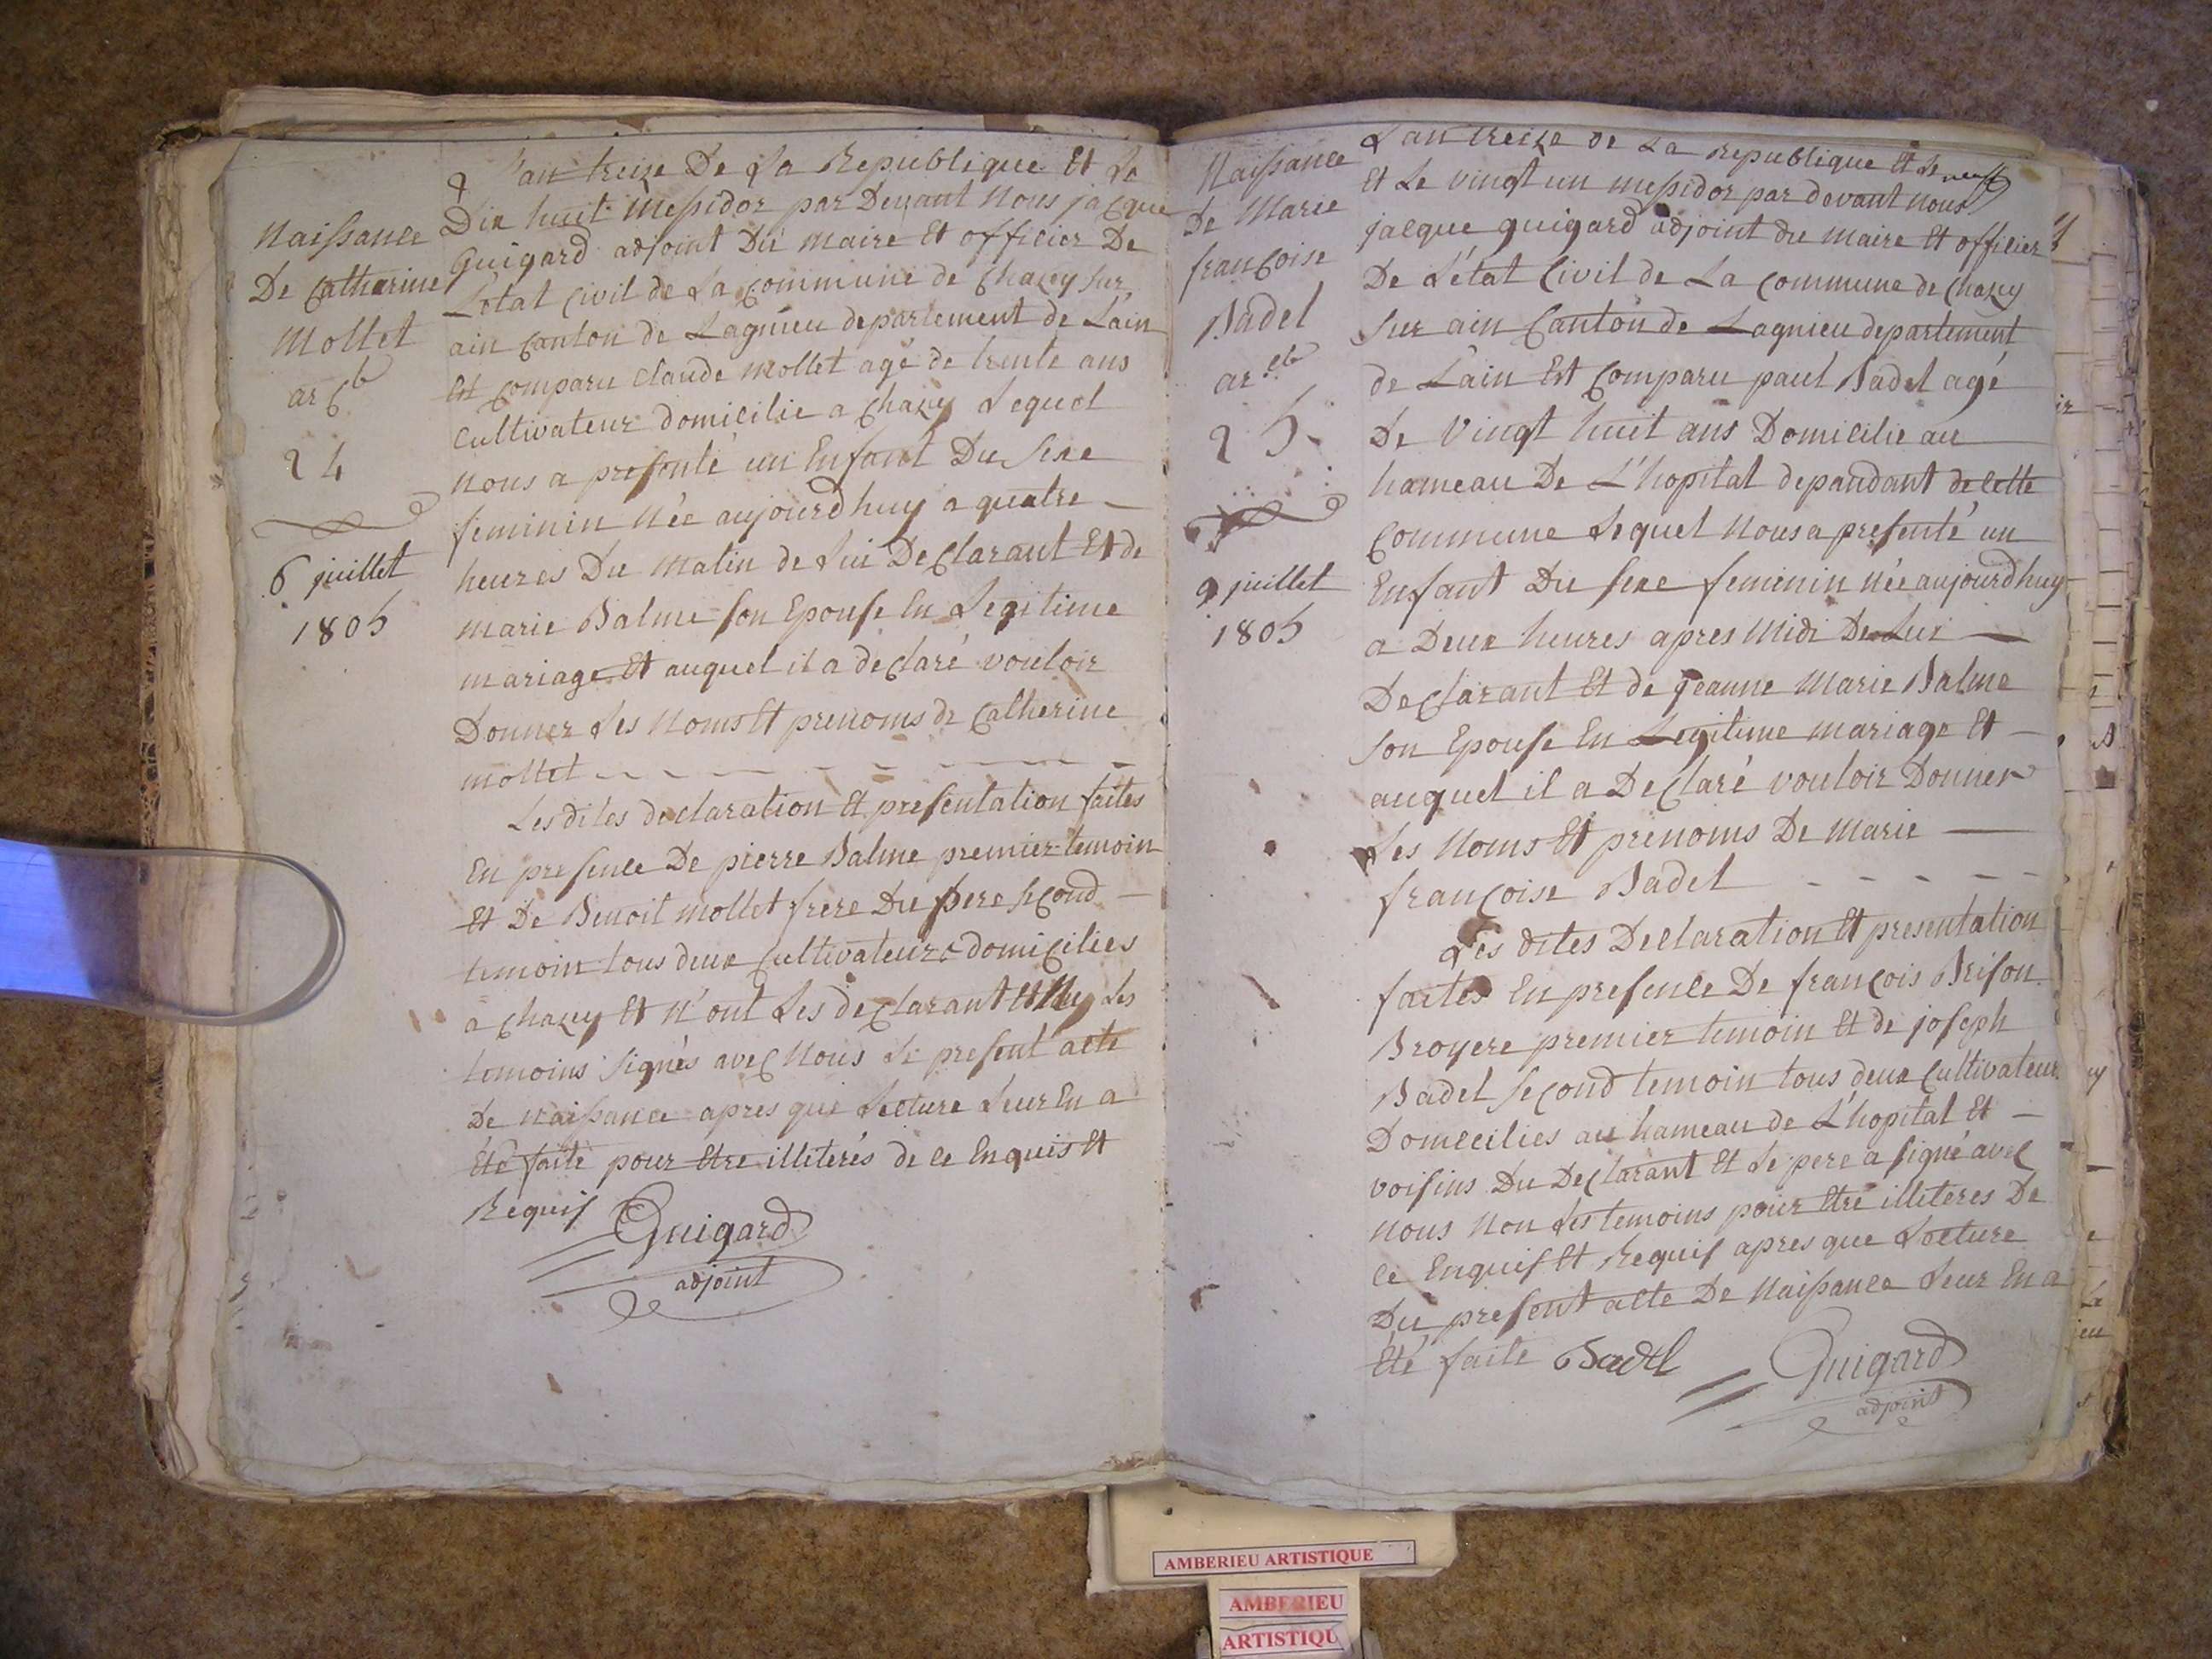 Naissance
De Catharine
Mollet
ar Cle
24
6 juillet
1805
L'an treize De La Republique Et Le
Dix huit Messidor par Devant Nous jacque
Guigard adjoint Du maire Et officier De
L'etat Civil de La Commune de Chazey sur
ain Canton de Lagnieu departement de L'ain
Est Comparu claude mollet agé de trente ans
Cultivateur domicilie a Chazey Lequel
nous a presenté un Enfant Du Sexe
feminin née aujourdhuy a quatre
heures Du Matin de Lui DeClarant Et de
marie Balme son Epouse En Legitime
mariage Et auquel il a deClaré vouloir
Donner Les Noms Et prenoms de Catherine
mollet
Les dites declaration Et presentation faites
En presence De pierre Balme premier temoin
Et De Benoit mollet frere Du pere seCond
temoin tous deux Cultivateurs domiCilies
a Chazey Et N'ont Les deClarant Et Ny Les
temoins signés aveC Nous Le present acte
De Naissance apres que Lecture Leur En a
Eté faite pour Etre illiterés de ce Enquis Et
Requis
Guigard
adjoint
Naissance
De Marie
françoise
Badel
ar cle
25
9 juillet
1805
L'an treize De La Republique Et Le neuf
Et Le vingt un messidor par devant nous
jacque guigard adjoint du maire Et officier
De L'état Civil de La Commune de Chazey
Sur ain Canton de Lagnieu departement
de L'ain Est Comparu paul Badel agé
De Vingt huit ans Domicilie au
hameau De L'hopital depandant de cette
Commune Lequel Nous a presenté un
Enfant Du sexe feminin née aujourdhuy
a Deux heures apres Midi De Lui
DeClarant Et de jeanne Marie Balme
son Epouse En Legitime mariage Et
auquel il a DeClaré vouloir Donner
Les Noms Et prenoms De Marie
françoise Badel
Les dites Declaration Et presentation
faites En presence De françois Brison
Broyere premier temoin Et de joseph
Badel seCond temoin tous deux Cultivateur
Domecilies au hameau de L'hopital Et
voisins Du DeClarant Et Le pere a signé aveC
nous Non Les temoins pour Etre illiteres De
ce Enquis Et Requis apres que Lecture
Du present acte De Naissance Leur En a
Eté faite Badel
Guigard
adjoint
AMBERIEU ARTISTIQUE
AMBERIEU
ARTISTIQU